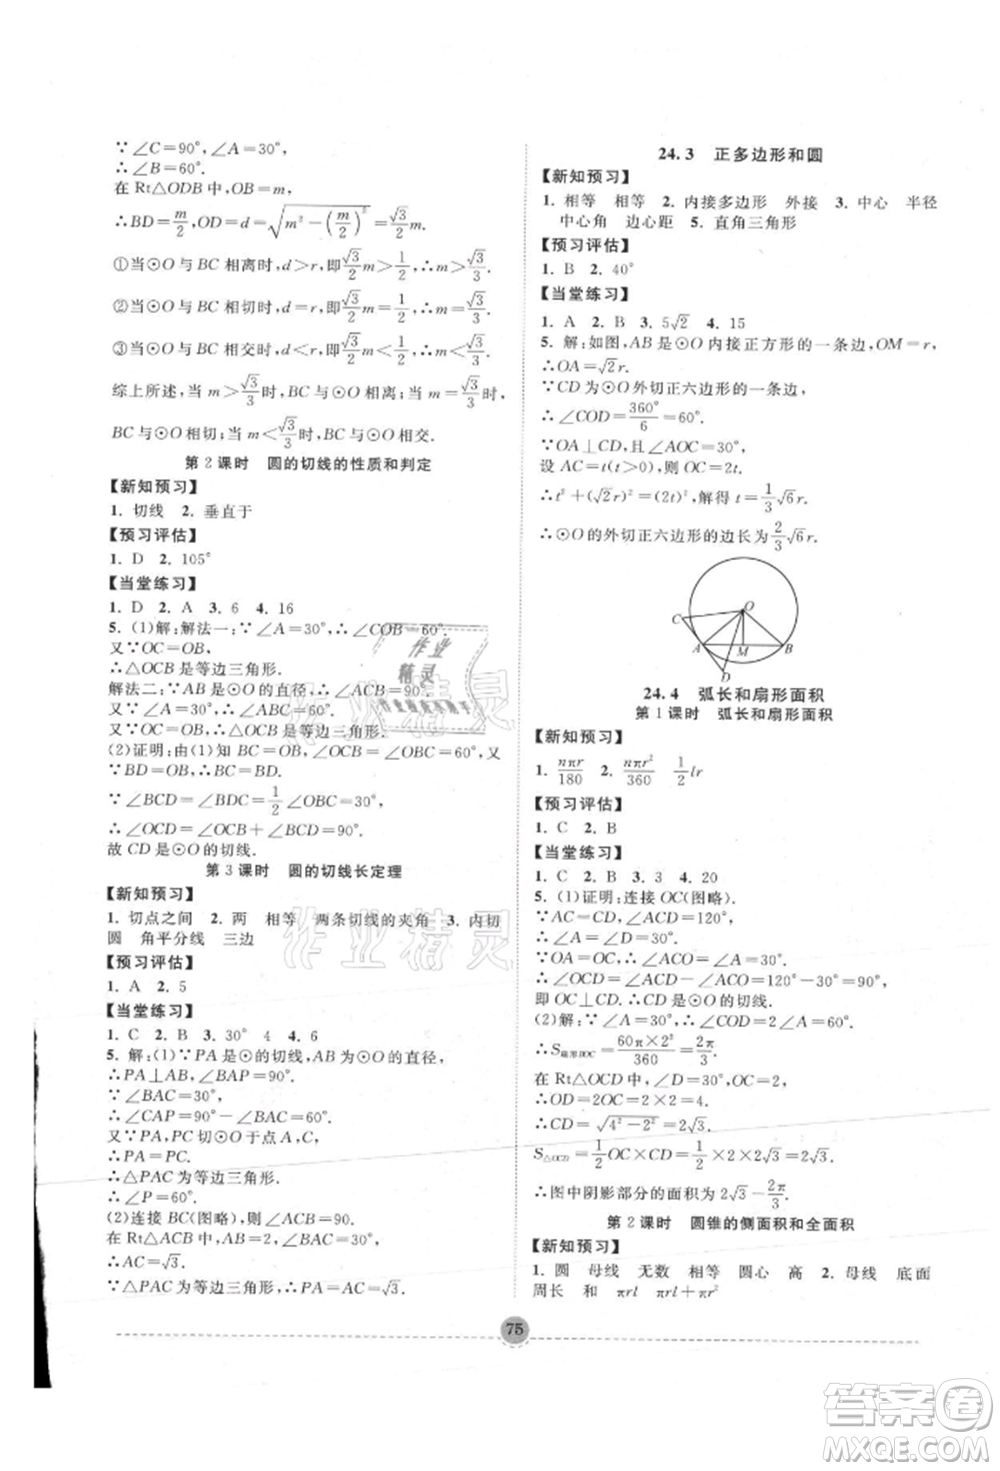 ∵∠C=90°,∠A=30°,
∴∠B=60°.
在 Rt△ODB 中,OB=m,
∴BD=m/2,OD=√(m²-(m/2)²)=√3/2 m.
①当⊙O 与 BC 相离时,d>r,即√3/2 m>1/2,∴m>√3/3.
②当⊙O 与 BC 相切时,d=r,即√3/2 m=1/2,∴m=√3/3.
③当⊙O 与 BC 相交时,d<r,即√3/2 m<1/2,∴m<√3/3.
综上所述,当 m>√3/3时,BC 与⊙O 相离;当 m=√3/3时,
BC 与⊙O 相切;当 m<√3/3时,BC 与⊙O 相交.
第 2 课时 圆的切线的性质和判定
【新知预习】
1. 切线 2. 垂直于
【预习评估】
1. D 2. 105°
【当堂练习】
1. D 2. A 3. 6 4. 16
5. (1)解:解法一:∵∠A=30°,∴∠COB=60°.
又∵OC=OB,
∴△OCB 是等边三角形.
解法二:∵AB 是⊙O 的直径,∴∠ACB=90°.
又∵∠A=30°,∴∠ABC=60°.
又∵OC=OB,∴△OCB 是等边三角形.
(2)证明:由(1)知 BC=OB,∠OCB=∠OBC=60°,又
∵BD=OB,∴BC=BD.
∴∠BCD=∠BDC=1/2∠OBC=30°.
∴∠OCD=∠OCB+∠BCD=90°.
故 CD 是⊙O 的切线.
第 3 课时 圆的切线长定理
【新知预习】
1. 切点之间 2. 两 相等 两条切线的夹角 3. 内切
圆 角平分线 三边
【预习评估】
1. A 2. 5
【当堂练习】
1. C 2. B 3. 30° 4 4. 6
5. 解:(1)∵PA 是⊙O 的切线,AB 为⊙O 的直径,
∴PA⊥AB,∴∠BAP=90°.
∵∠BAC=30°,
∴∠CAP=90°-∠BAC=60°.
又∵PA,PC 切⊙O 于点 A,C,
∴PA=PC.
∴△PAC 为等边三角形.
∴∠P=60°.
(2)连接 BC(图略),则∠ACB=90°.
在 Rt△ACB 中,AB=2,∠BAC=30°,
∴AC=√3.
∵△PAC 为等边三角形,∴PA=AC,∴PA=√3.
24.3 正多边形和圆
【新知预习】
1. 相等 相等 2. 内接多边形 外接 3. 中心 半径
中心角 边心距 5. 直角三角形
【预习评估】
1. B 2. 40°
【当堂练习】
1. A 2. B 3. 5√2 4. 15
5. 解:如图,AB 是⊙O 内接正方形的一条边,OM=r,
∴OA=√2r.
∵CD 为⊙O 外切正六边形的一条边,
∴∠COD=360°/6=60°.
∵OA⊥CD,∴∠AOC=30°.
设 AC=t(t>0),则 OC=2t.
∴t²+(√2r)²=(2t)²,解得 t=1/3√6r.
∴⊙O 的外切正六边形的边长为2/3√6r.
O
C
A
M
B
D
24.4 弧长和扇形面积
第 1 课时 弧长和扇形面积
【新知预习】
1. nπr/180 2. nπr²/360 1/2 lr
【预习评估】
1. C 2. B
【当堂练习】
1. C 2. B 3. 3 4. 20
5. (1)证明:连接 OC(图略).
∵AC=CD,∠ACD=120°,
∴∠A=∠D=30°.
∵OA=OC,∴∠ACO=∠A=30°.
∴∠OCD=∠ACD-∠ACO=120°-30°=90°,
即 OC⊥CD,∴CD 是⊙O 的切线.
(2)解:∵∠A=30°,∴∠COD=2∠A=60°.
∴S扇形BOC=60π×2²/360=2π/3.
在 Rt△OCD 中,∵∠D=30°,
∴OD=2OC=2×2=4.
∴CD=√(4²-2²)=2√3.
S△OCD=1/2OC×CD=1/2×2×2√3=2√3.
∴图中阴影部分的面积为2√3-2π/3.
第 2 课时 圆锥的侧面积和全面积
【新知预习】
1. 圆 母线 无数 相等 圆心 高 2. 母线 底面
周长 和 πrl πrl+πr²
75
作业精灵
作业精灵
作业
精灵
答案圈
MXQE.COM